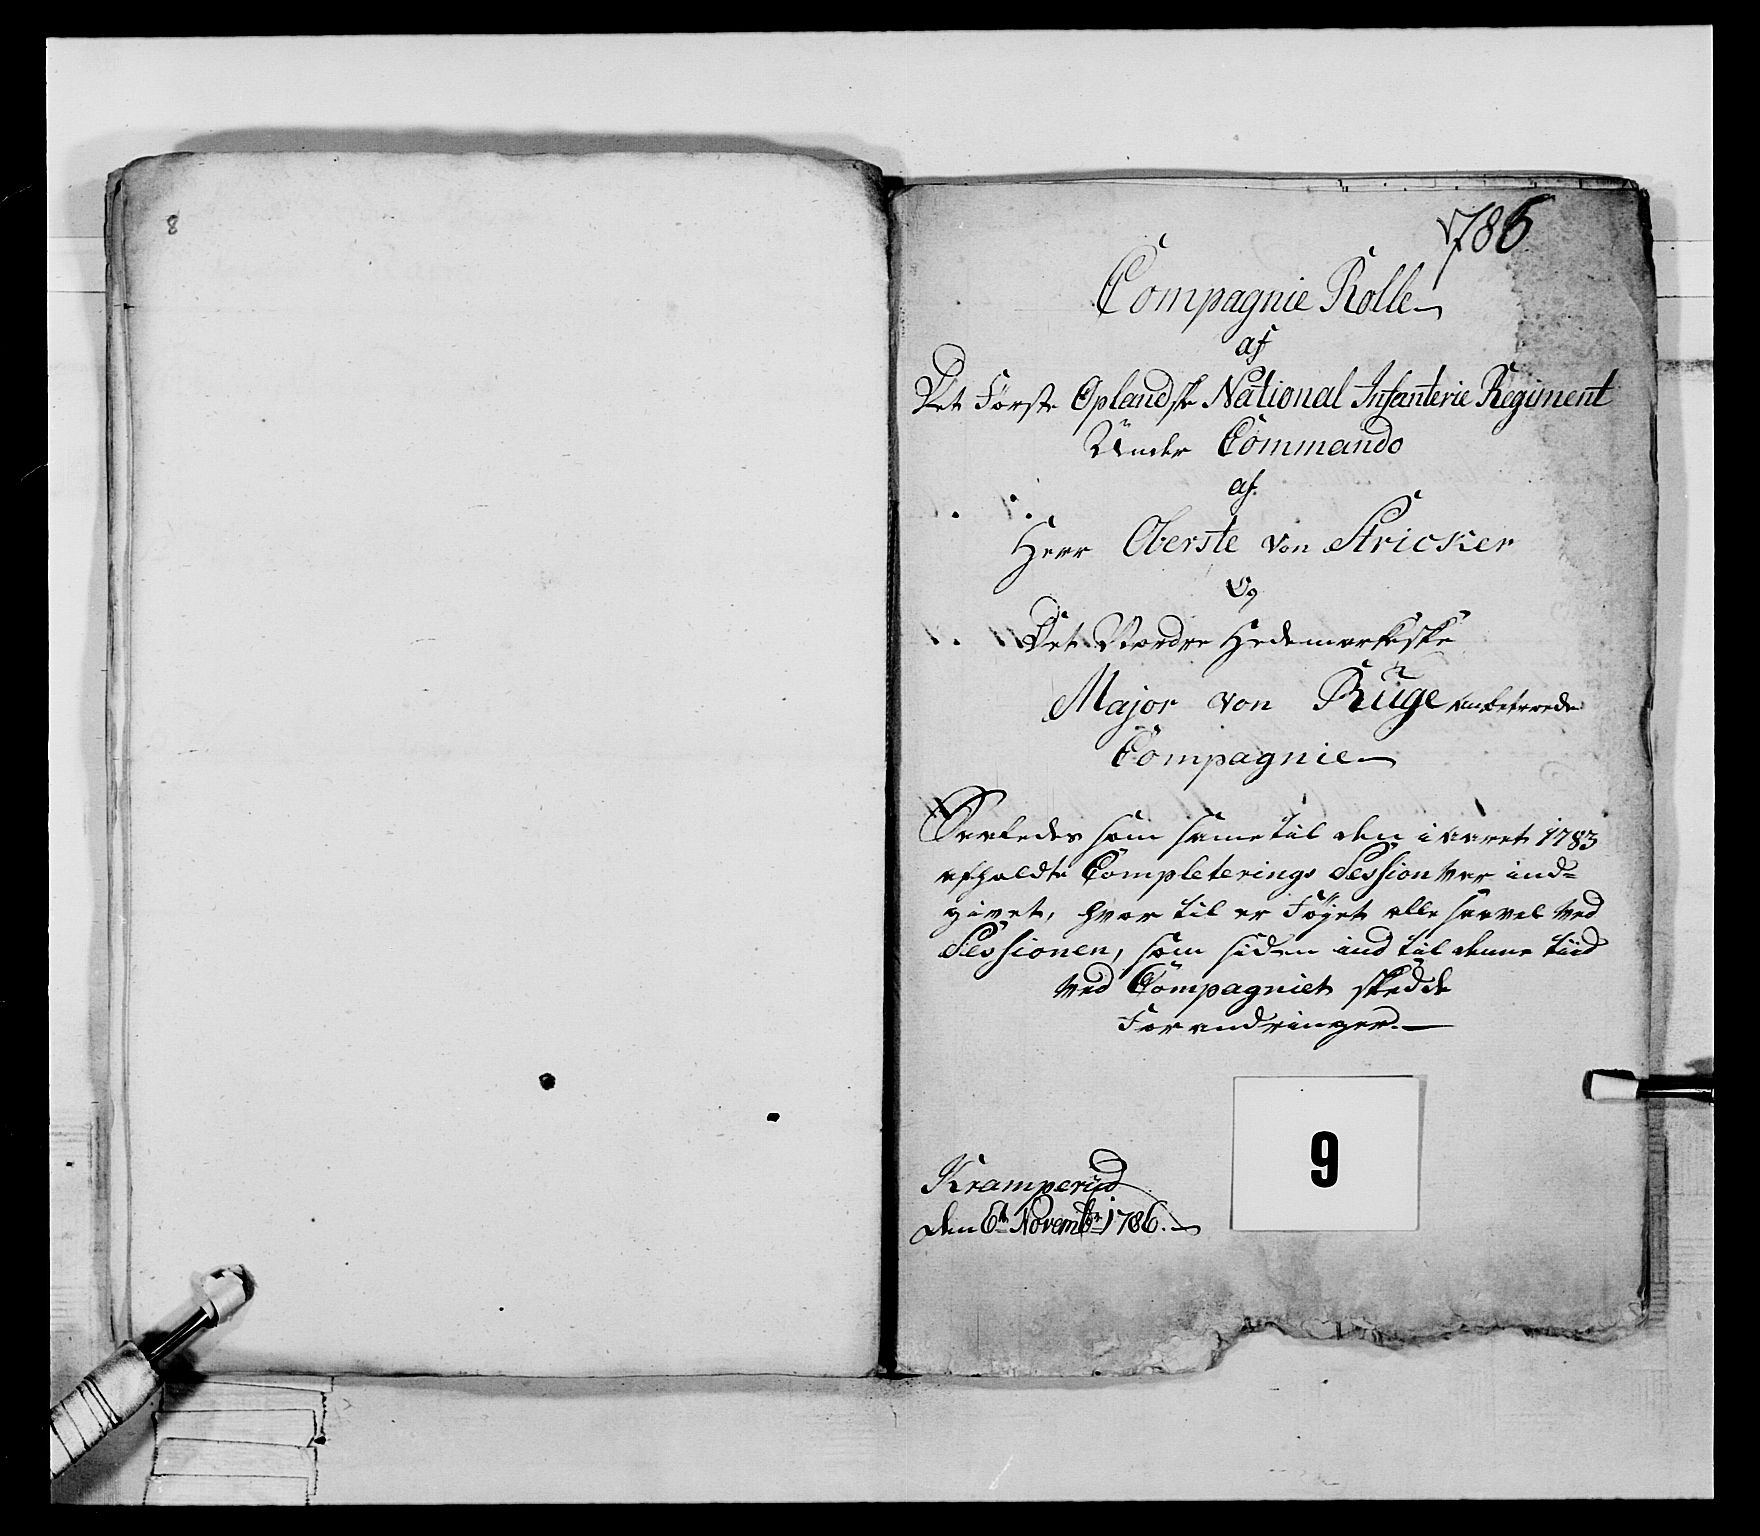 8
1786
Compagnie Rolle
af
Det Første Oplandske National Infanterie Regiment
Under Commando
af
Herr Oberste von Stricker
Og
Det Nordre Hedemarkske
Major von Rüge anbetroede
Compagnie
Saaledes som samme til den i aaret 1783
afholdte Completerings Session var ind=
givet, hvor til er Føyet alle saavel ved
Sessionen, som siden ind til denne tiid
ved Compagniet skedde
Forandringer.
9
Kramperud
den 6te Novembr 1786.